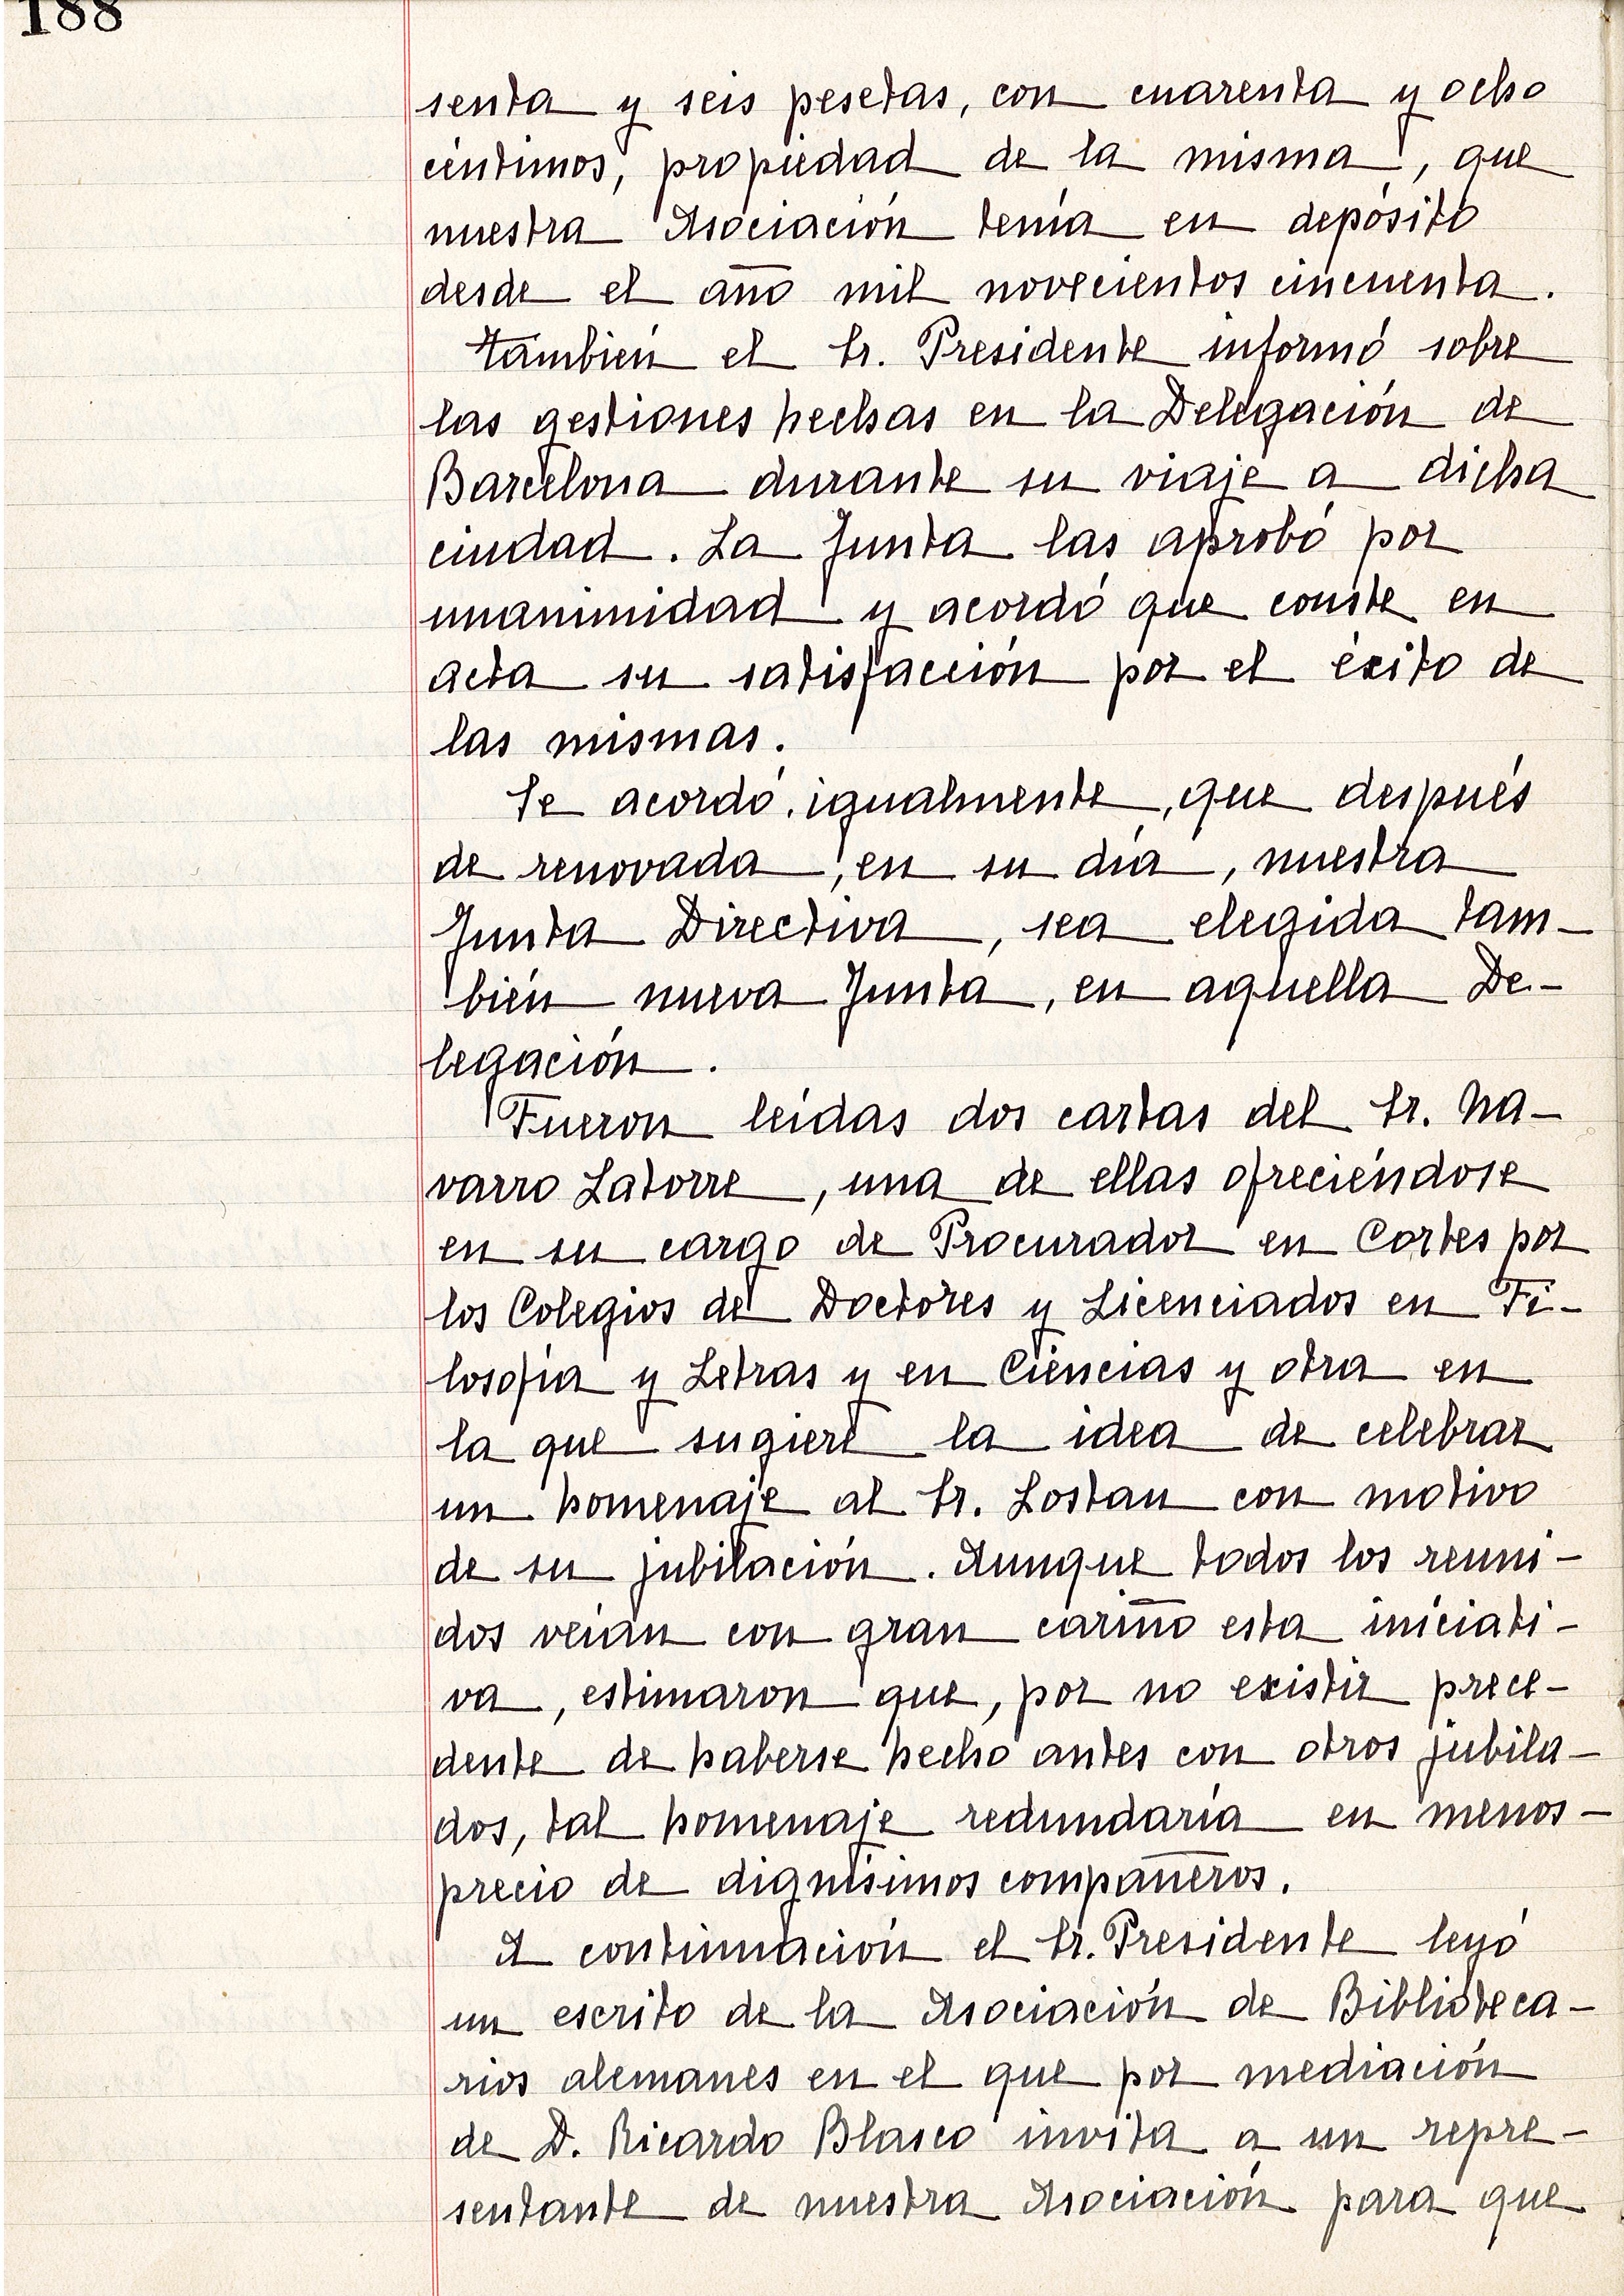 188
senta y seis pesetas, con cuarenta y ocho
céntimos, propiedad de la misma, que
nuestra Asociación tenía en depósito
desde el año mil novecientos cincuenta.
También el Sr. Presidente informó sobre
las gestiones hechas en la Delegación de
Barcelona durante su viaje a dicha
ciudad. La Junta las aprobó por
unanimidad y acordó que conste en
acta su satisfacción por el éxito de
las mismas.
Se acordó, igualmente, que después
de renovada, en su día, nuestra
Junta Directiva, sea elegida tam-
bién nueva Junta, en aquella De-
legación.
Fueron leídas dos cartas del Sr. Na-
varro Latorre, una de ellas ofreciéndose
en su cargo de Procurador en Cortes por
los Colegios de Doctores y Licenciados en Fi-
losofía y Letras y en Ciencias y otra en
la que sugiere la idea de celebrar
un homenaje al Sr. Lostau con motivo
de su jubilación. Aunque todos los reuni-
dos veían con gran cariño esta iniciati-
va, estimaron que, por no existir prece-
dente de haberse hecho antes con otros jubila-
dos, tal homenaje redundaría en menos-
precio de dignísimos compañeros.
A continuación el Sr. Presidente leyó
un escrito de la Asociación de Biblioteca-
rios alemanes en el que por mediación
de D. Ricardo Blasco invita a un repre-
sentante de nuestra Asociación para que